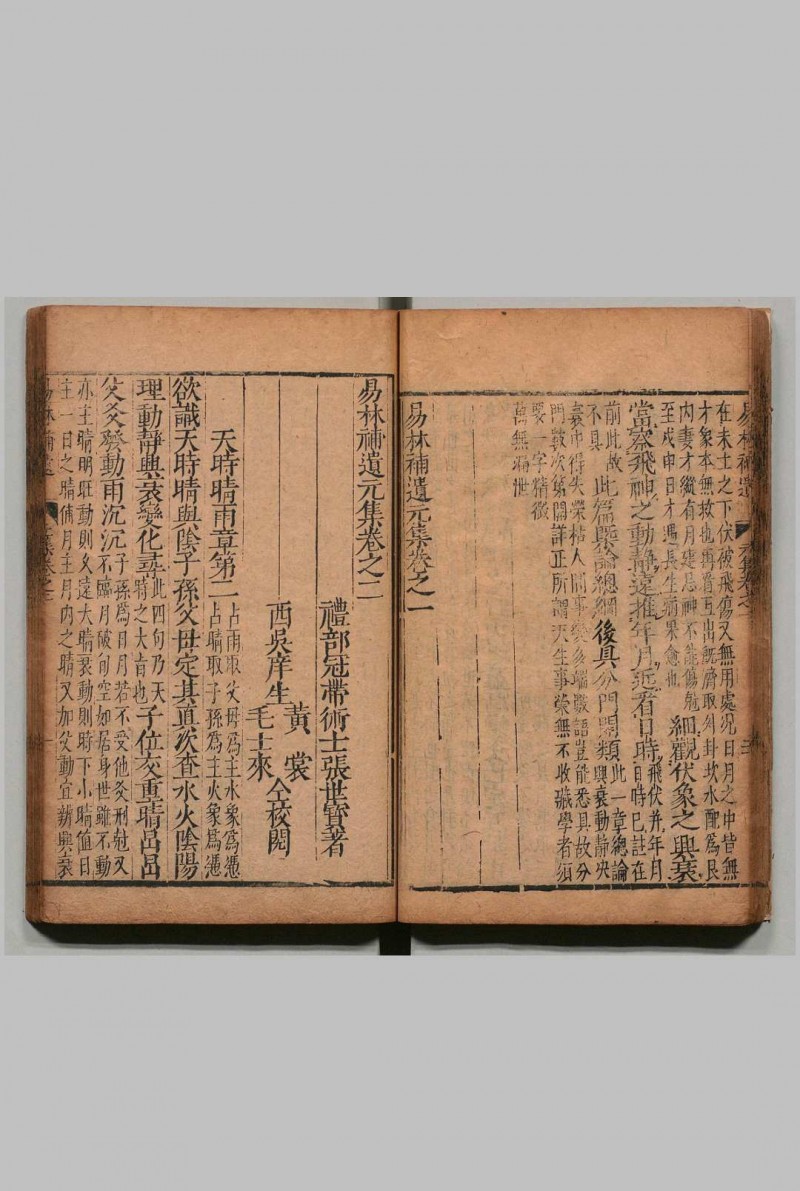 在未土之下伏被飛傷又無用處況日月之中皆無
才象本無救也再看互出旣濟取外卦坎水配為艮
內妻才縱有月建忌神不能傷尅
至戌申日才遇長生病果愈也 細觀伏象之興衰
當察飛神之動靜遠推年月近看日時 飛伏并年月日時已註在
前此故不具 此篇槩論總綱後具分門閞類 此一章總論興衰動靜央
裏中得失榮枯人間事變多端數語豈能悉具故分
門數次第開詳正所謂天生事榮無不收藏學者須
要一字精微
萬無漏世
易林補遺元集卷之一
易林補遺元集卷之二
禮部冠帶術士張世寶著
西吳庠生 黃裳 毛士來 仝校閱
天時晴雨章第二 占雨取父母為主水象為憑
占晴取子孫為主火象為憑
欲識天時晴與陰子孫父母定其真次查水火陰陽
理動靜興衰變化尋 此四句乃天時之大旨也 子位交重晴杲杲
父爻發動雨沉沉 子孫為日月若不受他爻刑尅又
不臨月破旬空如居身世雖不動
亦主晴明旺動則久遠大晴衰動則時下小晴值日
主一日之晴值月主月內之晴又加父動宜辨興衰